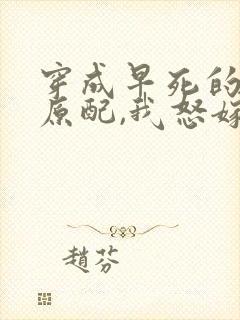 穿成早死的
原配,我怒嫁
趙芬